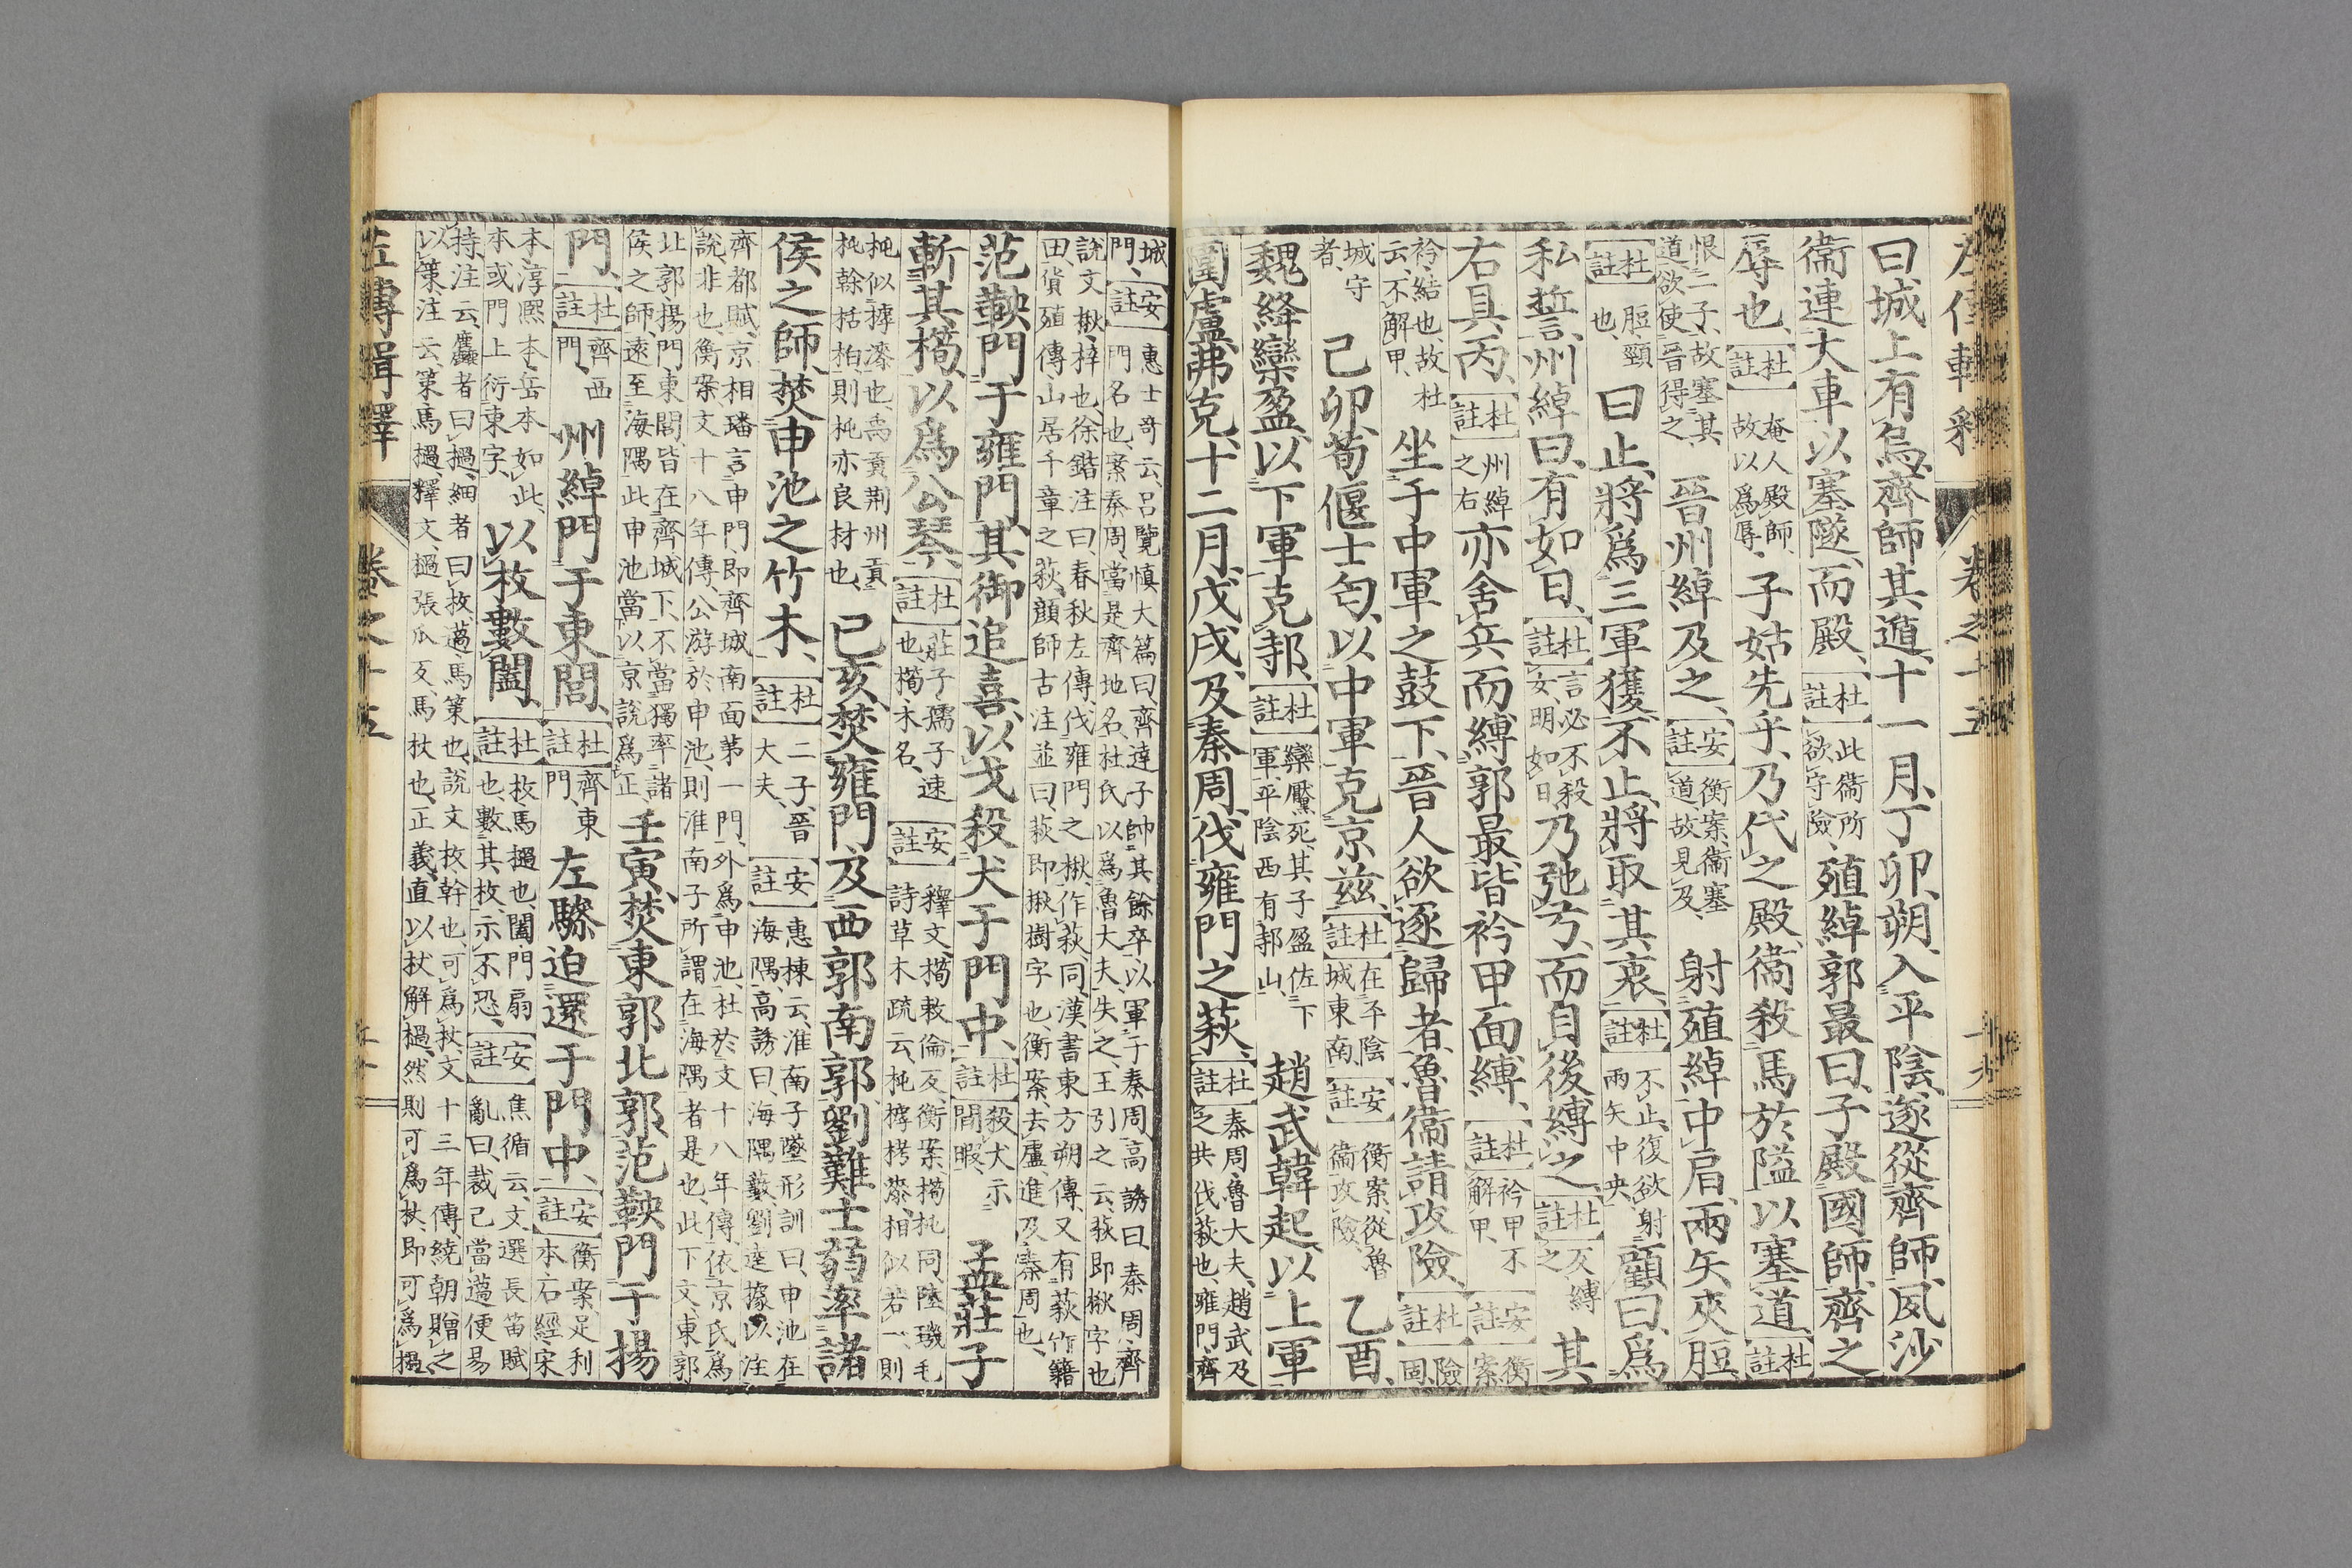 左傳輯釋 卷之十五
曰城上有烏齊師其遁十一月丁卯朔入平陰遂從齊師夙沙
衞連大車以塞隧而殿杜註此衞所欲守險殖綽郭最曰子殿國師齊之
辱也杜註奄人殿師故以爲辱子姑先乎乃代之殿衞殺馬於隘以塞道杜註
恨二子故塞其道欲使晉得之晉州綽及之安註衡案衞塞道故見及射殖綽中肩兩矢夾脰
杜註脰頸也曰止將爲三軍獲不止將取其衷杜註不止復欲射兩矢中央顧曰爲
私誓州綽曰有如日杜註言必不殺女明如日乃弛弓而自後縛之杜註反縛之其
右具丙杜註州綽之右亦舍兵而縛郭最皆衿甲面縛杜註衿甲不解甲安註衡案
衿結也故杜云不解甲坐于中軍之鼓下晉人欲逐歸者魯衞請攻險杜註險固
城守者己卯荀偃士匄以中軍克京茲杜註在平陰城東南安註衡案從魯衞攻險乙酉
魏絳欒盈以下軍克邿杜註欒黶死其子盈佐下軍平陰西有邿山趙武韓起以上軍
圍盧弗克十二月戊戌及秦周伐雍門之萩杜註秦周魯大夫趙武及之共伐萩也雍門齊
城門安註惠士奇云呂覽愼大篇曰齊達子帥其餘卒以軍于秦周高誘曰秦周齊門名也案秦周當是齊地名杜氏以爲魯大夫失之王引之云萩即楸字也
說文楸梓也徐鍇注曰春秋左傳伐雍門之楸作萩同漢書東方朔傳又有萩竹籍田貨殖傳山居千章之萩顏師古注並曰萩即楸樹字也衡案去盧進及秦周也
范鞅門于雍門其御追喜以戈殺犬于門中杜註殺犬示閒暇孟莊子
斬其橁以爲公琴杜註莊子孺子速也橁木名安註釋文橁敕倫反衡案橁杶同陸璣毛詩草木疏云杶樗栲漆相似若一則
杶似樗漆也禹貢荆州貢杶榦栝柏則杶亦良材也己亥焚雍門及西郭南郭劉難士弱率諸
侯之師焚申池之竹木杜註二子晉大夫安註惠棟云淮南子墜形訓曰申池在海隅高誘曰海隅藪劉逵據以注
齊都賦京相璠言申門即齊城南面第一門外爲申池杜於文十八年傳依京氏爲說非也衡案文十八年傳公游於申池則淮南子所謂在海隅者是也此下文東郭
北郭揚門東閭皆在齊城下不當獨率諸侯之師遠至海隅此申池當以京說爲正壬寅焚東郭北郭范鞅門于揚
門杜註齊西門州綽門于東閭杜註齊東門左驂迫還于門中安註衡案足利本石經宋
本淳熙本岳本如此本或門上衍東字以枚數闔杜註枚馬檛也闔門扇也數其枚示不恐安註焦循云文選長笛賦亂曰裁己當薖便易
持注云麤者曰檛細者曰枚薖馬策也說文枚幹也可爲杖文十三年傳繞朝贈之以策注云策馬檛釋文檛張瓜反馬杖也正義直以杖解檛然則可爲杖即可爲檛
左傳輯釋 卷之十五